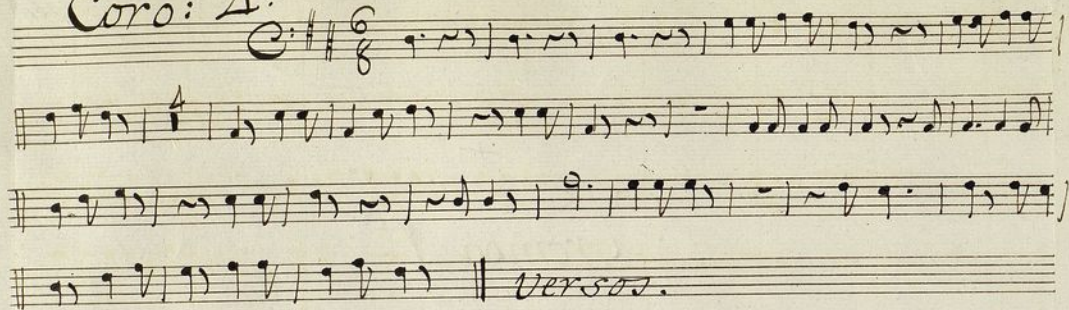 Coro: A.
6
8
4
versos.